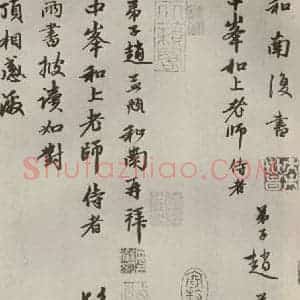 和南復書
弟子趙
中峯和上老師侍者
弟子趙孟頫和南再拜
中峯和上老師侍者
兩書披讀如對
頂相感激
Shufaziliao.com